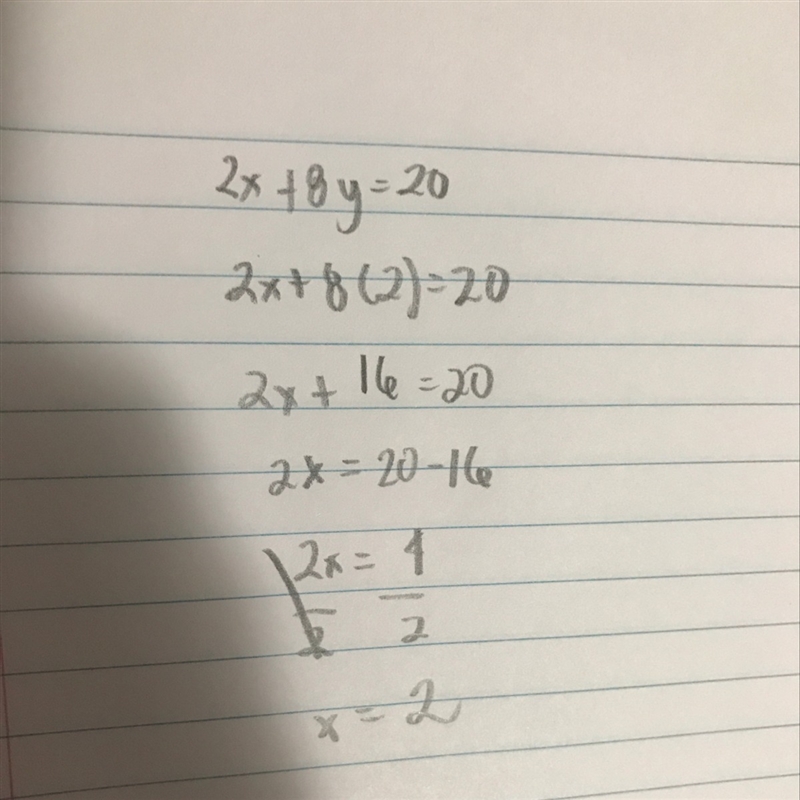 2x+8y=20
2x+8(2)=20
2x+16=20
2x=20-16
2x/2=4/2
x=2